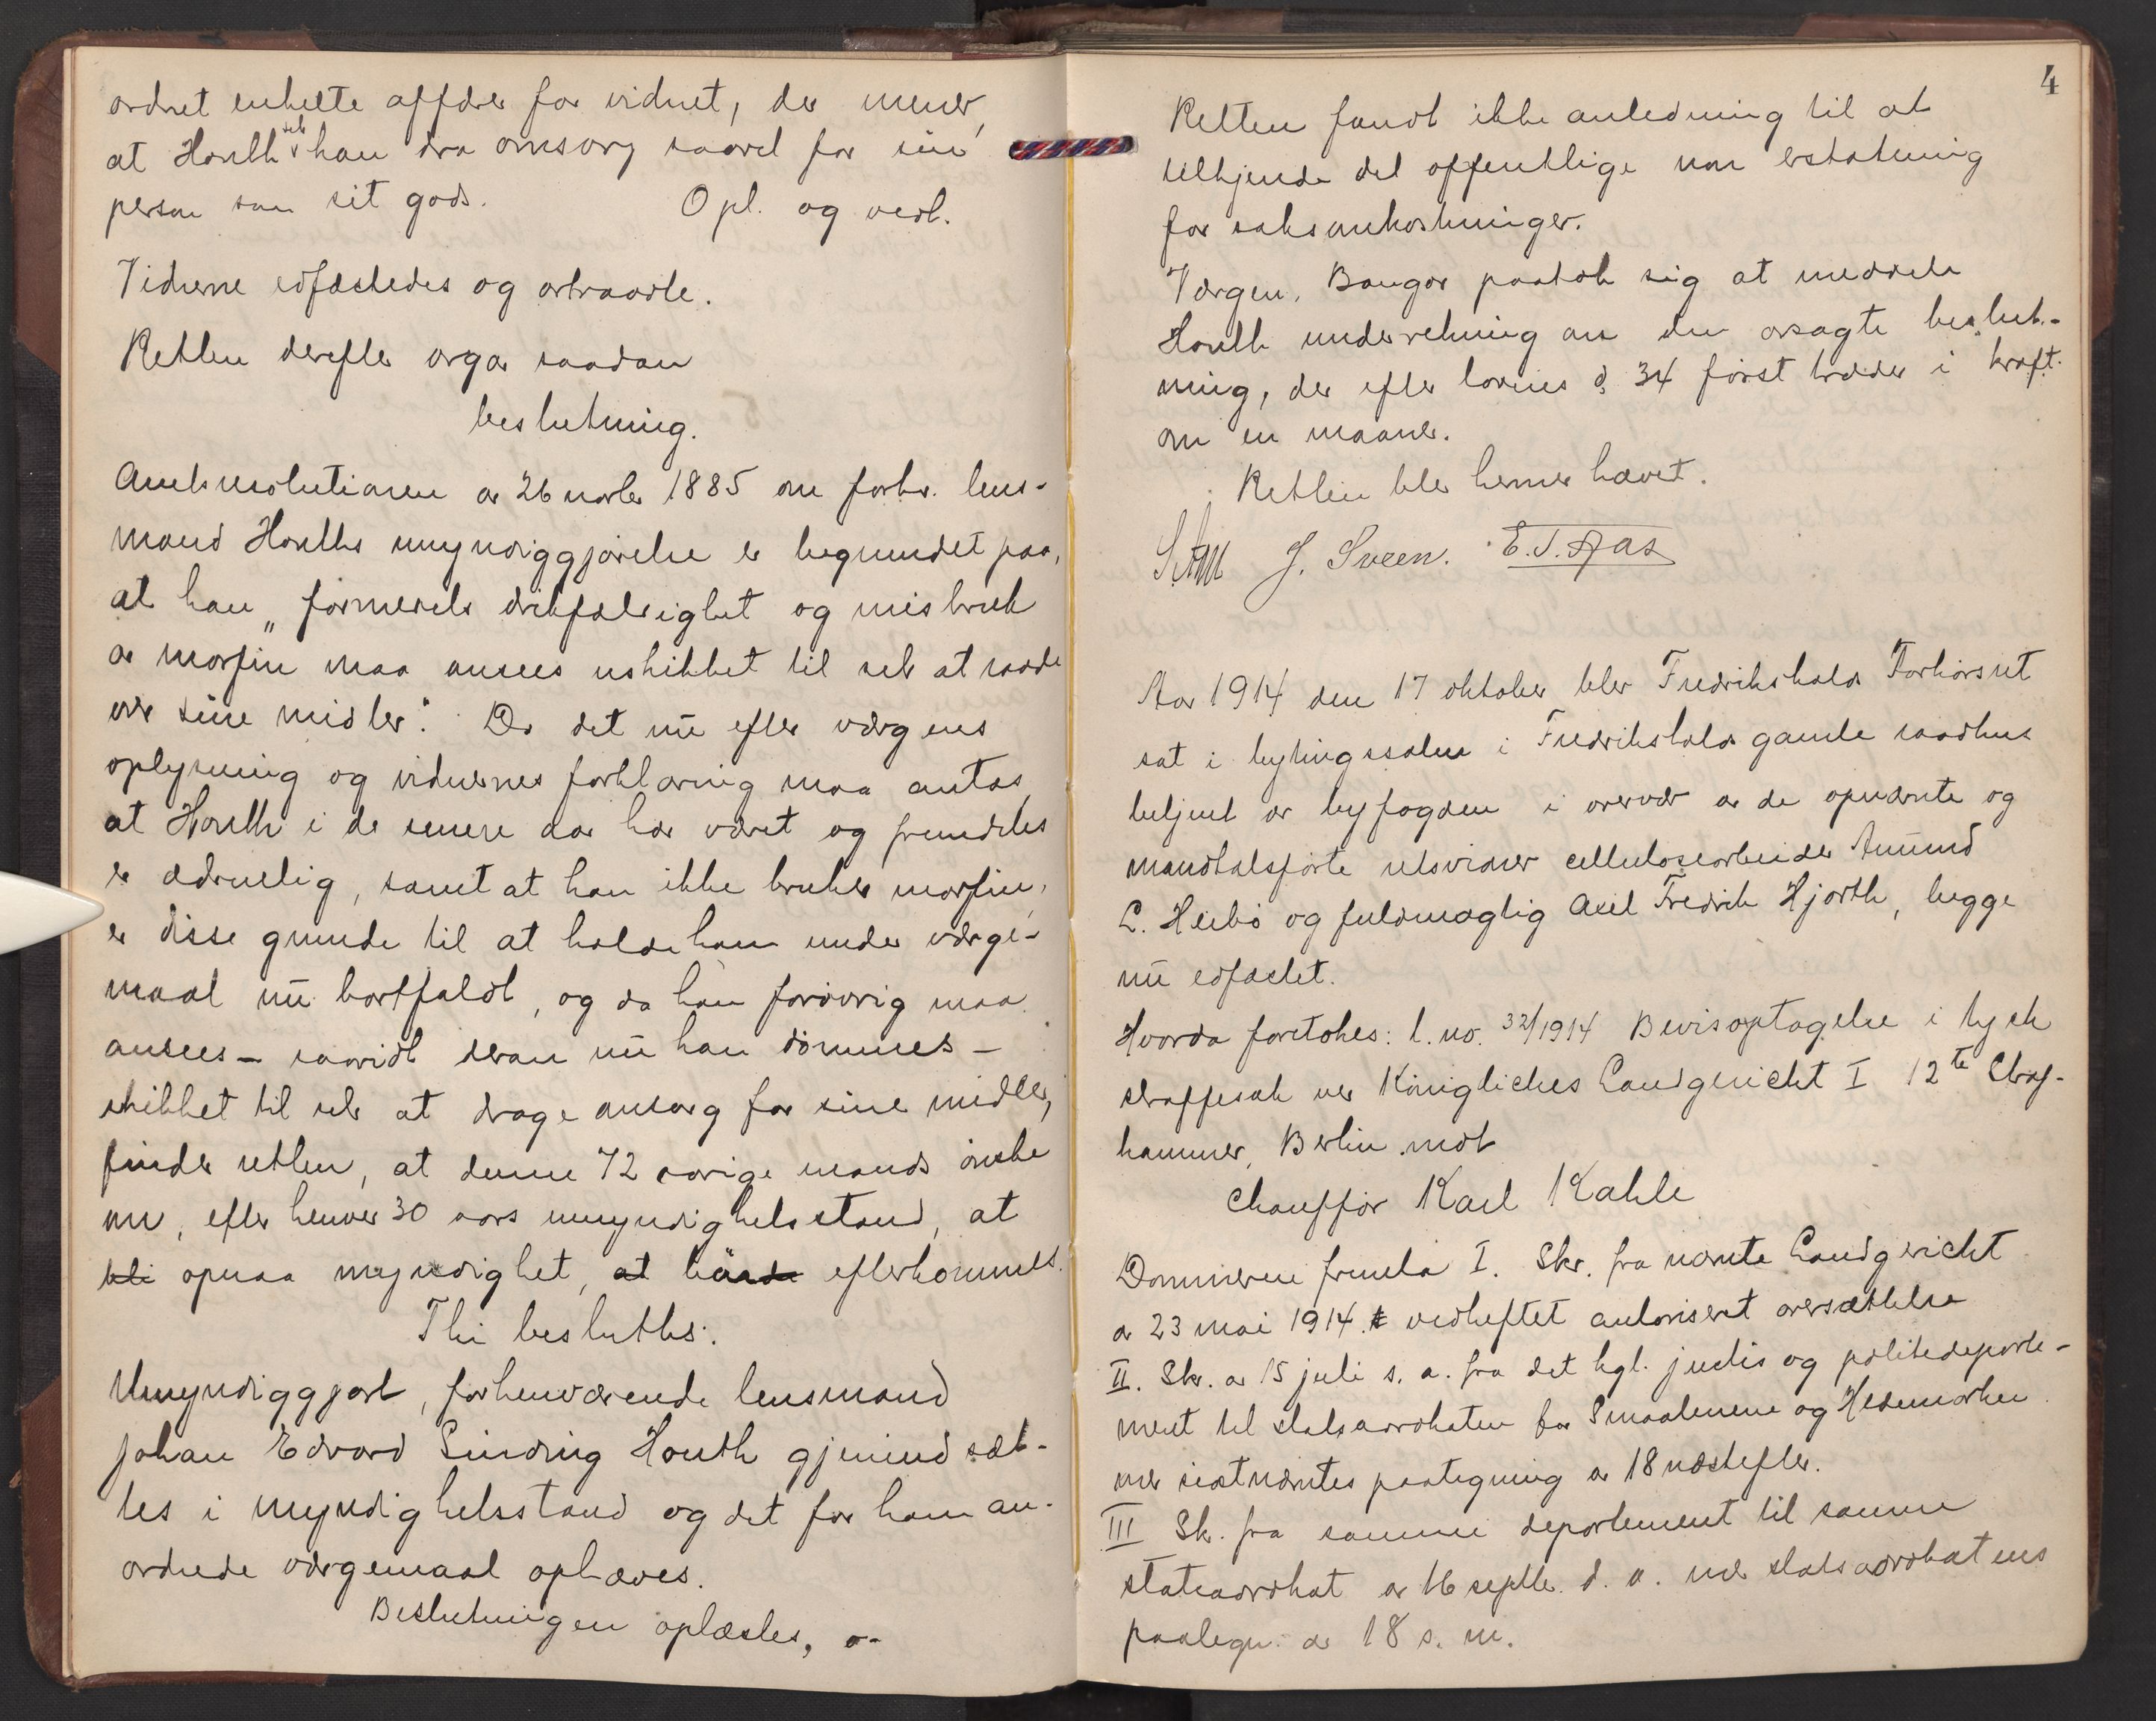 ordnet enkelte affærer for vidnet, der mener,
at Houth selv kan dra omsorg saavel for sin
person som sit gods. Opl. og vedt.
Vidnerne edfæstedes og aftraadte.
Retten derefter avga saadan
beslutning.
Amtsresolutionen av 26 novbr 1885 om forhv. lens-
mand Houths umyndiggjørelse er begrundet paa,
at han „formedels drikfældighet og misbruk
av morfin maa ansees uskikket til selv at raade
over sine midler". Da det nu efter værgens
oplysning og vidnernes forklaring maa antas,
at Houth i de senere aar har været og fremdeles
er ædruelig, samt at han ikke bruker morfin,
er disse grunde til at holde ham under værge-
maal nu bortfaldt, og da han forøvrig maa
ansees - saavidt derom nu kan dømmes -
skikket til selv at drage omsorg for sine midler,
finder retten, at denne 72 aarige mands ønske
om, efter henved 30 aars umyndighetsstand, at
bli opnaa myndighet, at burde efterkommes.
Thi besluttes:
Umyndiggjort, forhenværende lensmand
Johan Edvard Sinding Houth gjenind sæt-
tes i myndighetsstand og det for ham an-
ordnede værgemaal ophæves.
Beslutningen oplæstes, o-
4
Retten fandt ikke anledning til at
tilkjende det offentlige noen erstatning
for saksomkostninger.
Værgen, Bauger paatok sig at meddele
Houth underretning om den avsagte beslut-
ning, der efter lovens § 34 først træder i kraft
om en maaned.
Retten blev herved hævet.
J. Sveen. E. J. Aas
Aar 1914 den 17 oktober blev Fredrikshalds Forhørsret
sat i bytingssalen i Fredrikshalds gamle raadhus
betjent av byfogden i overvær av de opnævnte og
mandtalsførte retsvidner cellulosearbeider Amund
L. Heibø og fuldmægtig Axel Fredrik Hjorth, begge
nu edfæstet.
Hvorda foretokes: l. no. 32/1914 Bevisoptagelse i tysk
straffesak ved Königliches Landgericht I 12te Straf-
kammer, Berlin mot
Chauffør Karl Kahle
Dommeren fremla I. Skr. fra nævnte Landgericht
av 23 mai 1914. vedheftet autoriseret oversættelse
II. Skr. av 15 juli s. a. fra det kgl. justis og politideparte-
ment til statsadvokaten for Smaalenene og Hedemarken
med sistnævntes paategning av 18 næstefter.
III Sk. fra samme departement til samme
statsadvokat av 16 septbr. d. a. med statsadvokatens
paategn. av 18 s. m.